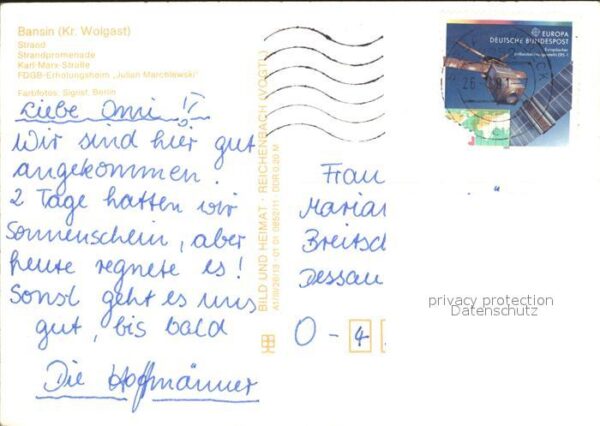 Bansin (Kr. Wolgast)
Strand
Strandpromenade
Karl-Marx-Straße
FDGB-Erholungsheim „Julian Marchlewski"
Farbfotos: Signist, Berlin
Liebe Omi!!
Wir sind hier gut
angekommen.
2 Tage hatten wir
Sonnenschein, aber
heute regnete es!
Sonst geht es uns
gut, bis bald
Die Hoffmänner
BILD UND HEIMAT · REICHENBACH (VOGTL)
A1/III/26/13 · 01 01 0852/11 · DDR 0,20 M
EUROPA
DEUTSCHE BUNDESPOST
Europäischer
Frau
Marian
Breitsch
Dessau
O - 4
privacy protection
Datenschutz